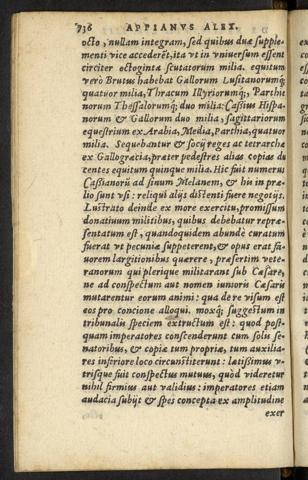 736 APPIANVS ALEX.
octo, nullam integram, sed quibus duæ supple-
menti vice accederēt, ita vt in vniuersum essent
circiter octoginta scutatorum milia. equitum
verò Brutus habebat Gallorum Lusitanorumq;
quatuor milia, Thracum Illyriorumq;, Parthie
norum Thessalorumq; duo milia: Cassius Hispa-
norum & Gallorum duo milia, sagittariorum
equestrium ex Arabia, Media, Parthia, quatuor
milia. Sequebantur & socij reges ac tetrarchæ
ex Gallogræcia, præter pedestres alias copias du
centes equitum quinque milia. Hic fuit numerus
Cassianorū ad sinum Melanem, & his in præ-
lio sunt vsi: reliqui alijs distenti fuere negotijs.
Lustrato deinde ex more exercitu, promissum
donatiuum militibus, quibus debebatur repræ-
sentatum est, quandoquidem abundè curatum
fuerat vt pecuniæ suppeterent, & opus erat fa-
uorem largitionibus quærere, præsertim vete-
ranorum qui plerique militarant sub Cæsare,
ne ad conspectum aut nomen iunioris Cæsaris
mutarentur eorum animi: qua de re visum est
eos pro concione alloqui. moxq; suggestum in
tribunalis speciem extructum est: quod post-
quam imperatores conscenderunt cum solis se-
natoribus, & copiæ tum propriæ, tum auxilia-
res inferiore loco circunstiterunt: lætissimus v-
trisque fuit conspectus mutuus, quòd videretur
nihil firmius aut validius: imperatores etiam
audacia subijt & spei concepta ex amplitudine
exer